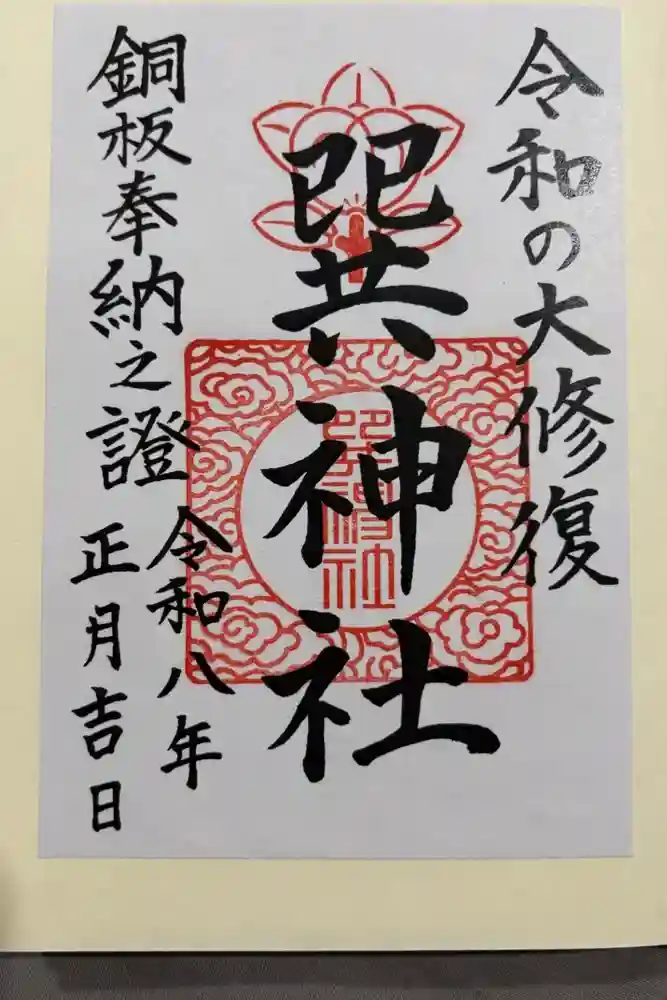 令和の大修復
巽神社
巽神社
銅板奉納之證
令和八年
正月吉日